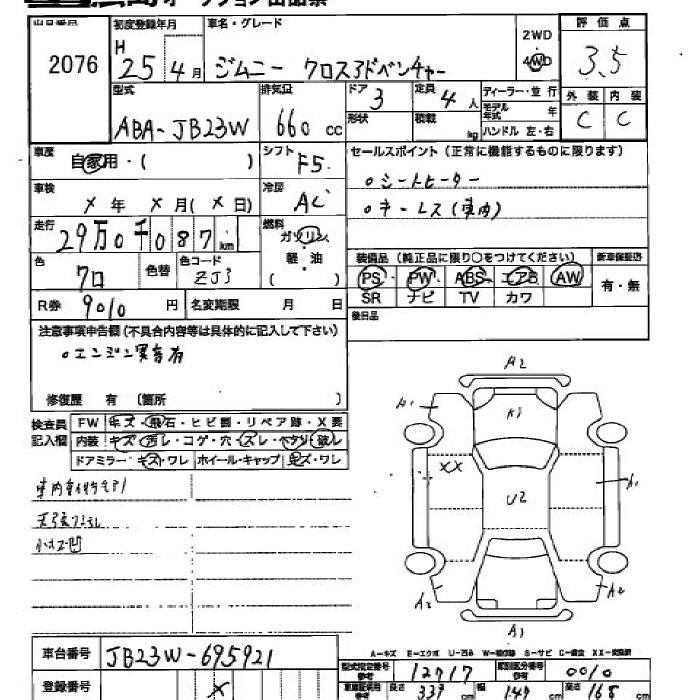 オークション出品票
出品番号 2076
初度登録年月 H 25年4月
車名・グレード ジムニー クロスアドベンチャー
2WD
4WD
評価点 3.5
外装 C 内装 C
型式 ABA-JB23W
排気量 660 cc
ドア 3
形状
定員 4人
積載 kg
ディーラー・並行
モデル年式 年
ハンドル 左・右
車歴 自家用・( )
シフト F5
セールスポイント(正常に機能するものに限ります)
○シートヒーター
○キーレス(車内)
車検 ×年 ×月(×日)
冷房 AC
走行 29万0千087km
燃料 ガソリン 軽・油 ( )
装備品(純正品に限り○をつけてください)
新車保証書 有・無
PS PW ABS エアB AW
SR ナビ TV カワ
色 クロ
色替
色コード ZJ3
R券 9010円
名変期限 月 日
後日品
注意事項申告欄(不具合内容等は具体的に記入して下さい)
○エンジン異音有
修復歴 有 〔箇所 〕
検査員記入欄
FW キズ・飛石・ヒビ割・リペア跡・X要
内装 キズ・汚レ・コゲ・穴・スレ・ヘタリ・破レ
ドアミラー キズ・ワレ ホイール・キャップ キズ・ワレ
小キズ凹
A2
A1
A1
XX
U2
A1
A2
A2
A1
A-キズ E-エクボ U-凹み W-補修跡 S-サビ C-腐食 XX-交換済
車台番号 JB23W-695921
型式指定番号 参考 12717
類別区分番号 参考 0010
登録番号 ×
車検証明用 参考 長さ 339 cm 幅 149 cm 高さ 168 cm